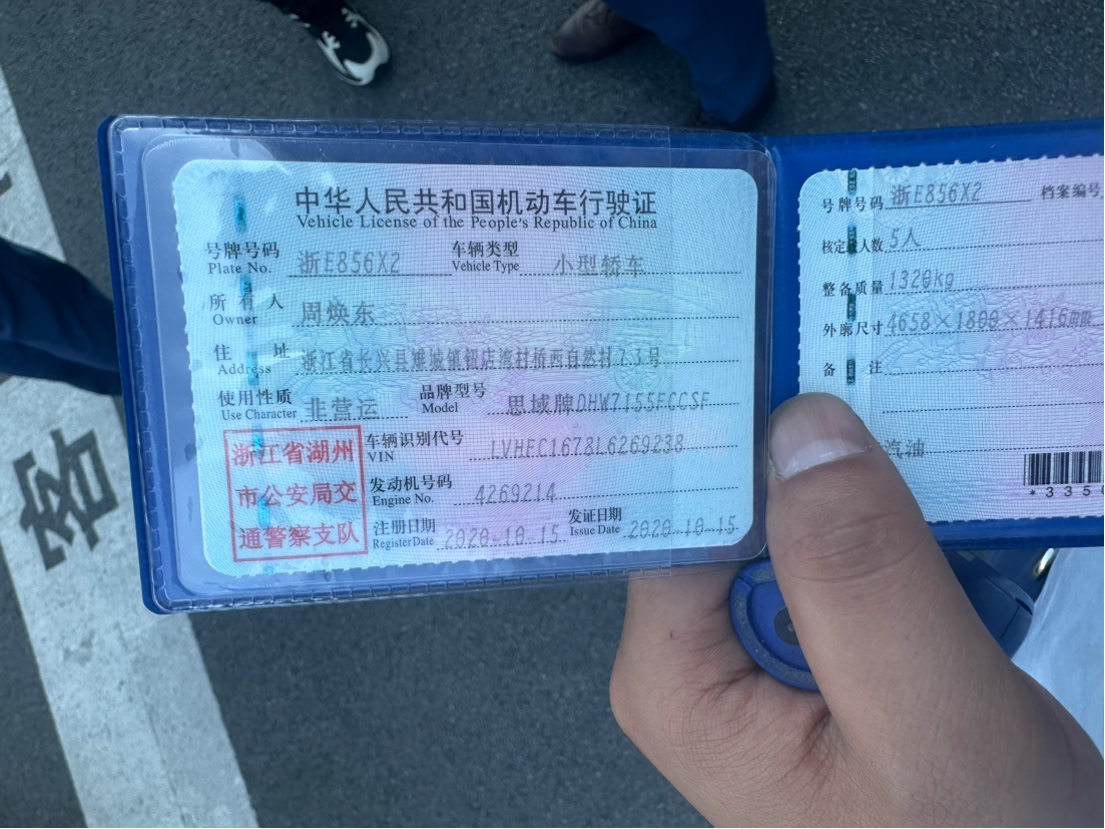 中华人民共和国机动车行驶证
Vehicle License of the People's Republic of China
号牌号码 浙E856X2 车辆类型 小型轿车
Plate No. Vehicle Type
所有人 周焕东
Owner
住址 浙江省长兴县雉城镇钮店湾村桥西自然村73号
Address
使用性质 非营运 品牌型号 思域牌DHW7155FCCSF
Use Character Model
浙江省湖州
市公安局交
通警察支队
车辆识别代号 LVHFC1678L6269238
VIN
发动机号码 4269214
Engine No.
注册日期 2020-10-15 发证日期 2020-10-15
Register Date Issue Date
号牌号码 浙E856X2 档案编号
核定 人数 5人
整备质量 1320kg
外廓尺寸 4658×1800×1416mm
备注
汽油
*3350
客